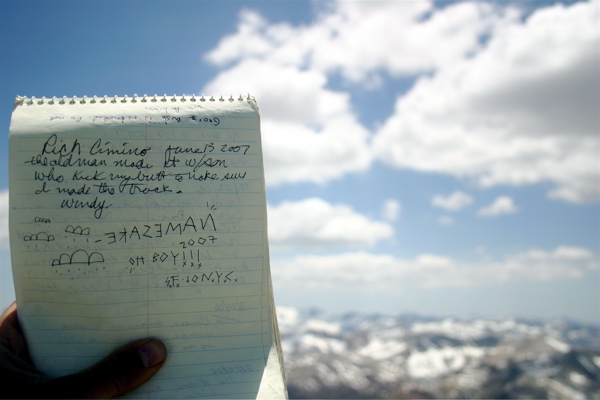 Rich Cimino June 13 2007
the old man made it w/son
who kick my butt to make sure
I made the track.
Windy
NAMEZAKE-
2007
OH BOY!!!
S.F. to N.Y.S.